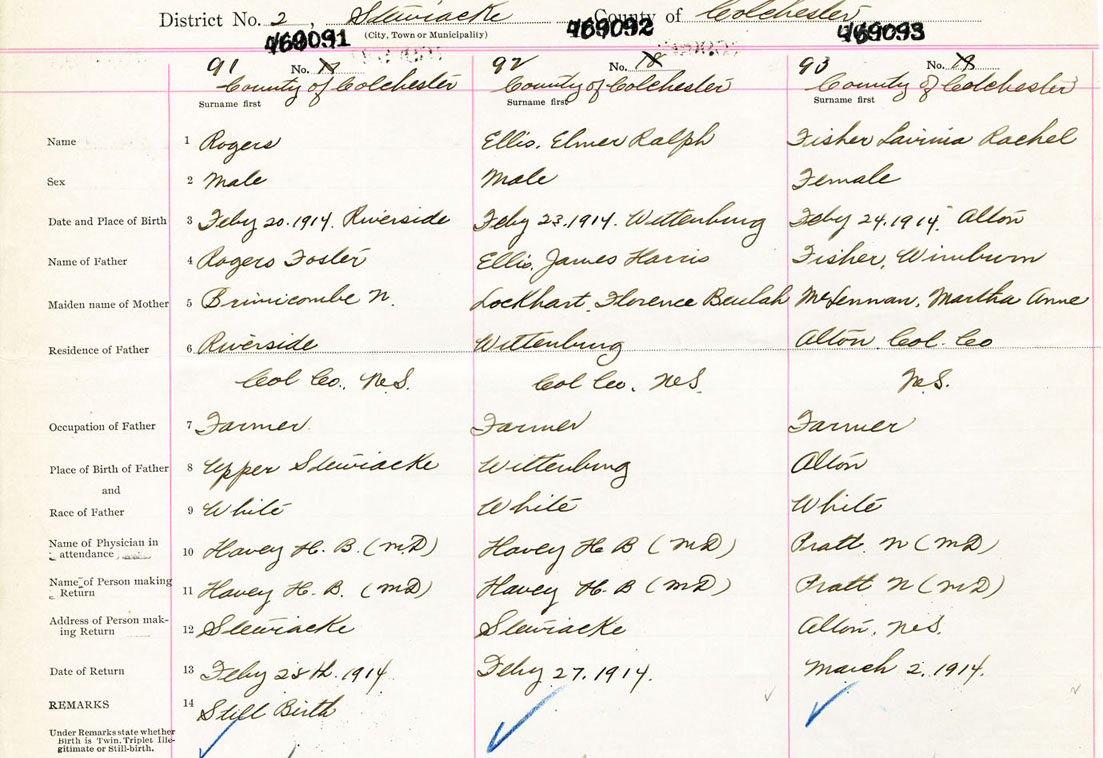 District No. 2, Stewiacke County of Colchester
(City, Town or Municipality)
469091 469092 469093
91 No. 92 No. 93 No.
County of Colchester County of Colchester County of Colchester
Surname first Surname first Surname first
Name 1 Rogers Ellis, Elmer Ralph Fisher Lavinia Rachel
Sex 2 Male Male Female
Date and Place of Birth 3 Feby 20. 1914. Riverside Feby 23. 1914. Wittenburg Feby 24. 1914 Alton
Name of Father 4 Rogers Foster Ellis, James Harris Fisher, Wimburn
Maiden name of Mother 5 Brimicombe N. Lockhart, Florence Beulah McLennan, Martha Anne
Residence of Father 6 Riverside Wittenburg Alton Col. Co
Col Co., N.S. Col Co. N.S. N.S.
Occupation of Father 7 Farmer Farmer Farmer
Place of Birth of Father 8 Upper Stewiacke Wittenburg Alton
and
Race of Father 9 White White White
Name of Physician in
attendance 10 Havey H. B. (MD) Havey H B (MD) Pratt. N (MD)
Name of Person making
Return 11 Havey H. B. (MD) Havey H. B (MD) Pratt N (MD)
Address of Person mak-
ing Return 12 Stewiacke Stewiacke Alton, N.S.
Date of Return 13 Feby 28th. 1914 Feby 27. 1914. March 2. 1914.
REMARKS 14 Still Birth
Under Remarks state whether
Birth is Twin, Triplet Ille-
gitimate or Still-birth.